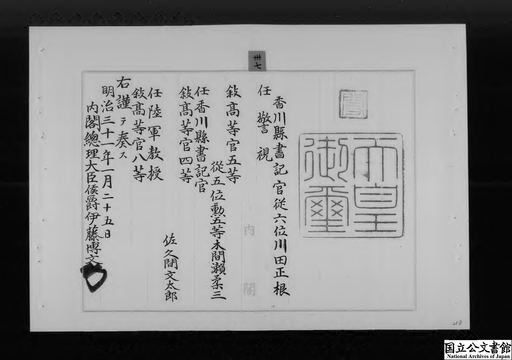 卅七
天皇御璽
香川縣書記官從六位川田正根
任警視
敍高等官五等
從五位勳五等木間瀬柔三
任香川縣書記官
敍高等官四等
佐久間文太郎
任陸軍教授
敍高等官八等
右謹テ奏ス
明治三十一年一月二十五日
內閣總理大臣侯爵伊藤博文
內閣
国立公文書館
National Archives of Japan